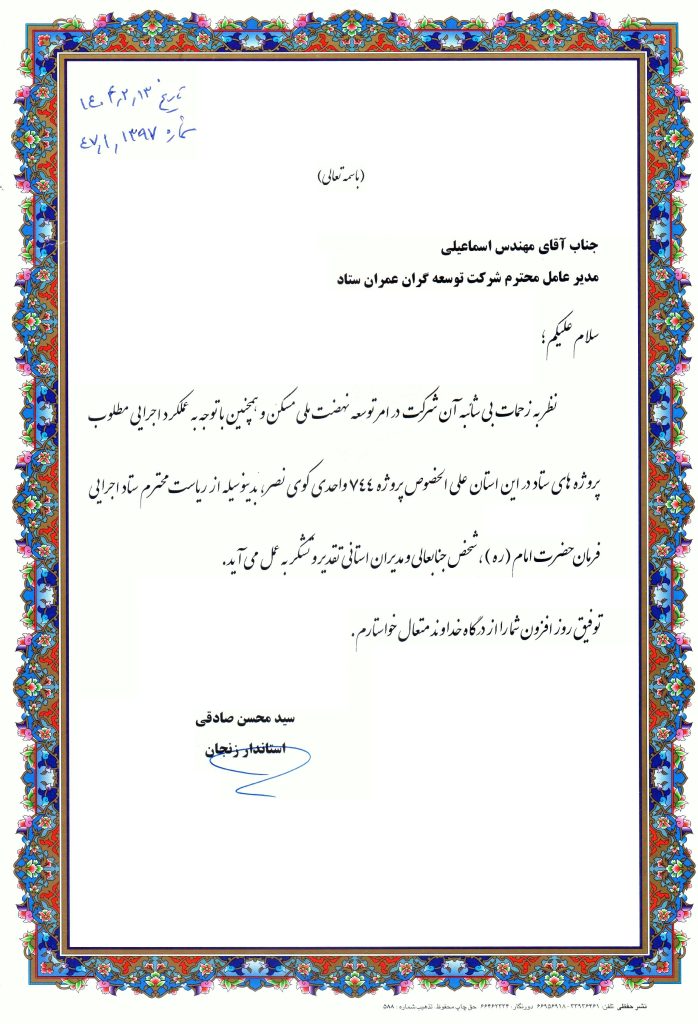 تاریخ ۱۴۰۴,۲,۱۳
شماره ۴۷,۱,۱۳۹۷
(باسمه تعالی)
جناب آقای مهندس اسماعیلی
مدیر عامل محترم شرکت توسعه گران عمران ستاد
سلام علیکم ؛
نظر به زحمات بی شائبه آن شرکت در امر توسعه نهضت ملی مسکن و همچنین با توجه به عملکرد اجرایی مطلوب
پروژه های ستاد در این استان علی الخصوص پروژه ۷۴۴ واحدی کوی نصر، بدینوسیله از ریاست محترم ستاد اجرایی
فرمان حضرت امام (ره) ، شخص جنابعالی و مدیران استانی تقدیر و تشکر به عمل می آید.
توفیق روز افزون شما را از درگاه خداوند متعال خواستارم .
سید محسن صادقی
استاندار زنجان
نشر حفظی تلفن: ۳۳۹۳۶۴۶۱ - ۶۶۹۵۶۹۱۸ دورنگار: ۶۶۴۶۲۳۳۴ حق چاپ محفوظ تذهیب شماره : ۵۸۸